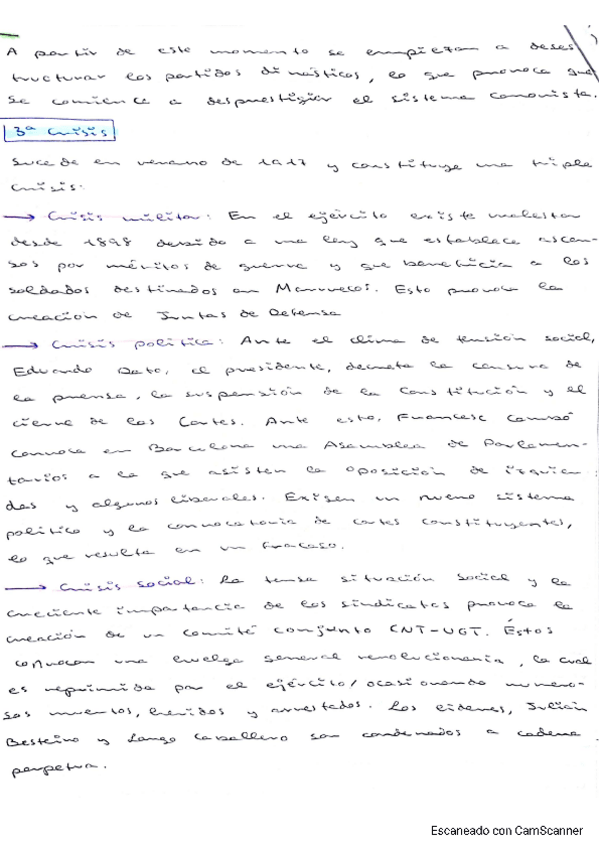 A partir de este momento se empiezan a deses
tructurar los partidos dinásticos, lo que provoca que
se comience a desprestigiar el sistema canovista.
3ª Crisis
Sucede en verano de 1917 y constituye una triple
crisis:
→ Crisis militar: En el ejército existe malestar
desde 1898 debido a una ley que establece ascen-
sos por méritos de guerra y que beneficia a los
soldados destinados en Marruecos. Esto provoca la
creación de Juntas de Defensa
→ Crisis política: Ante el clima de tensión social,
Eduardo Dato, el presidente, decreta la censura de
la prensa, la suspensión de la Constitución y el
cierre de las Cortes. Ante esto, Francesc Cambó
convoca en Barcelona una Asamblea de Parlamen-
tarios a la que asisten la oposición de izquier
das y algunos liberales. Exigen un nuevo sistema
político y la convocatoria de cortes constituyentes,
lo que resulta en un fracaso.
→ Crisis social: La tensa situación social y la
creciente importancia de los sindicatos provoca la
creación de un comité conjunto CNT-UGT. Éstos
convocan una huelga general revolucionaria, la cual
es reprimida por el ejército/ocasionando numero-
sos muertos, heridos y arrestados. Los líderes, Julián
Besteiro y Largo Caballero son condenados a cadena
perpetua.
Escaneado con CamScanner